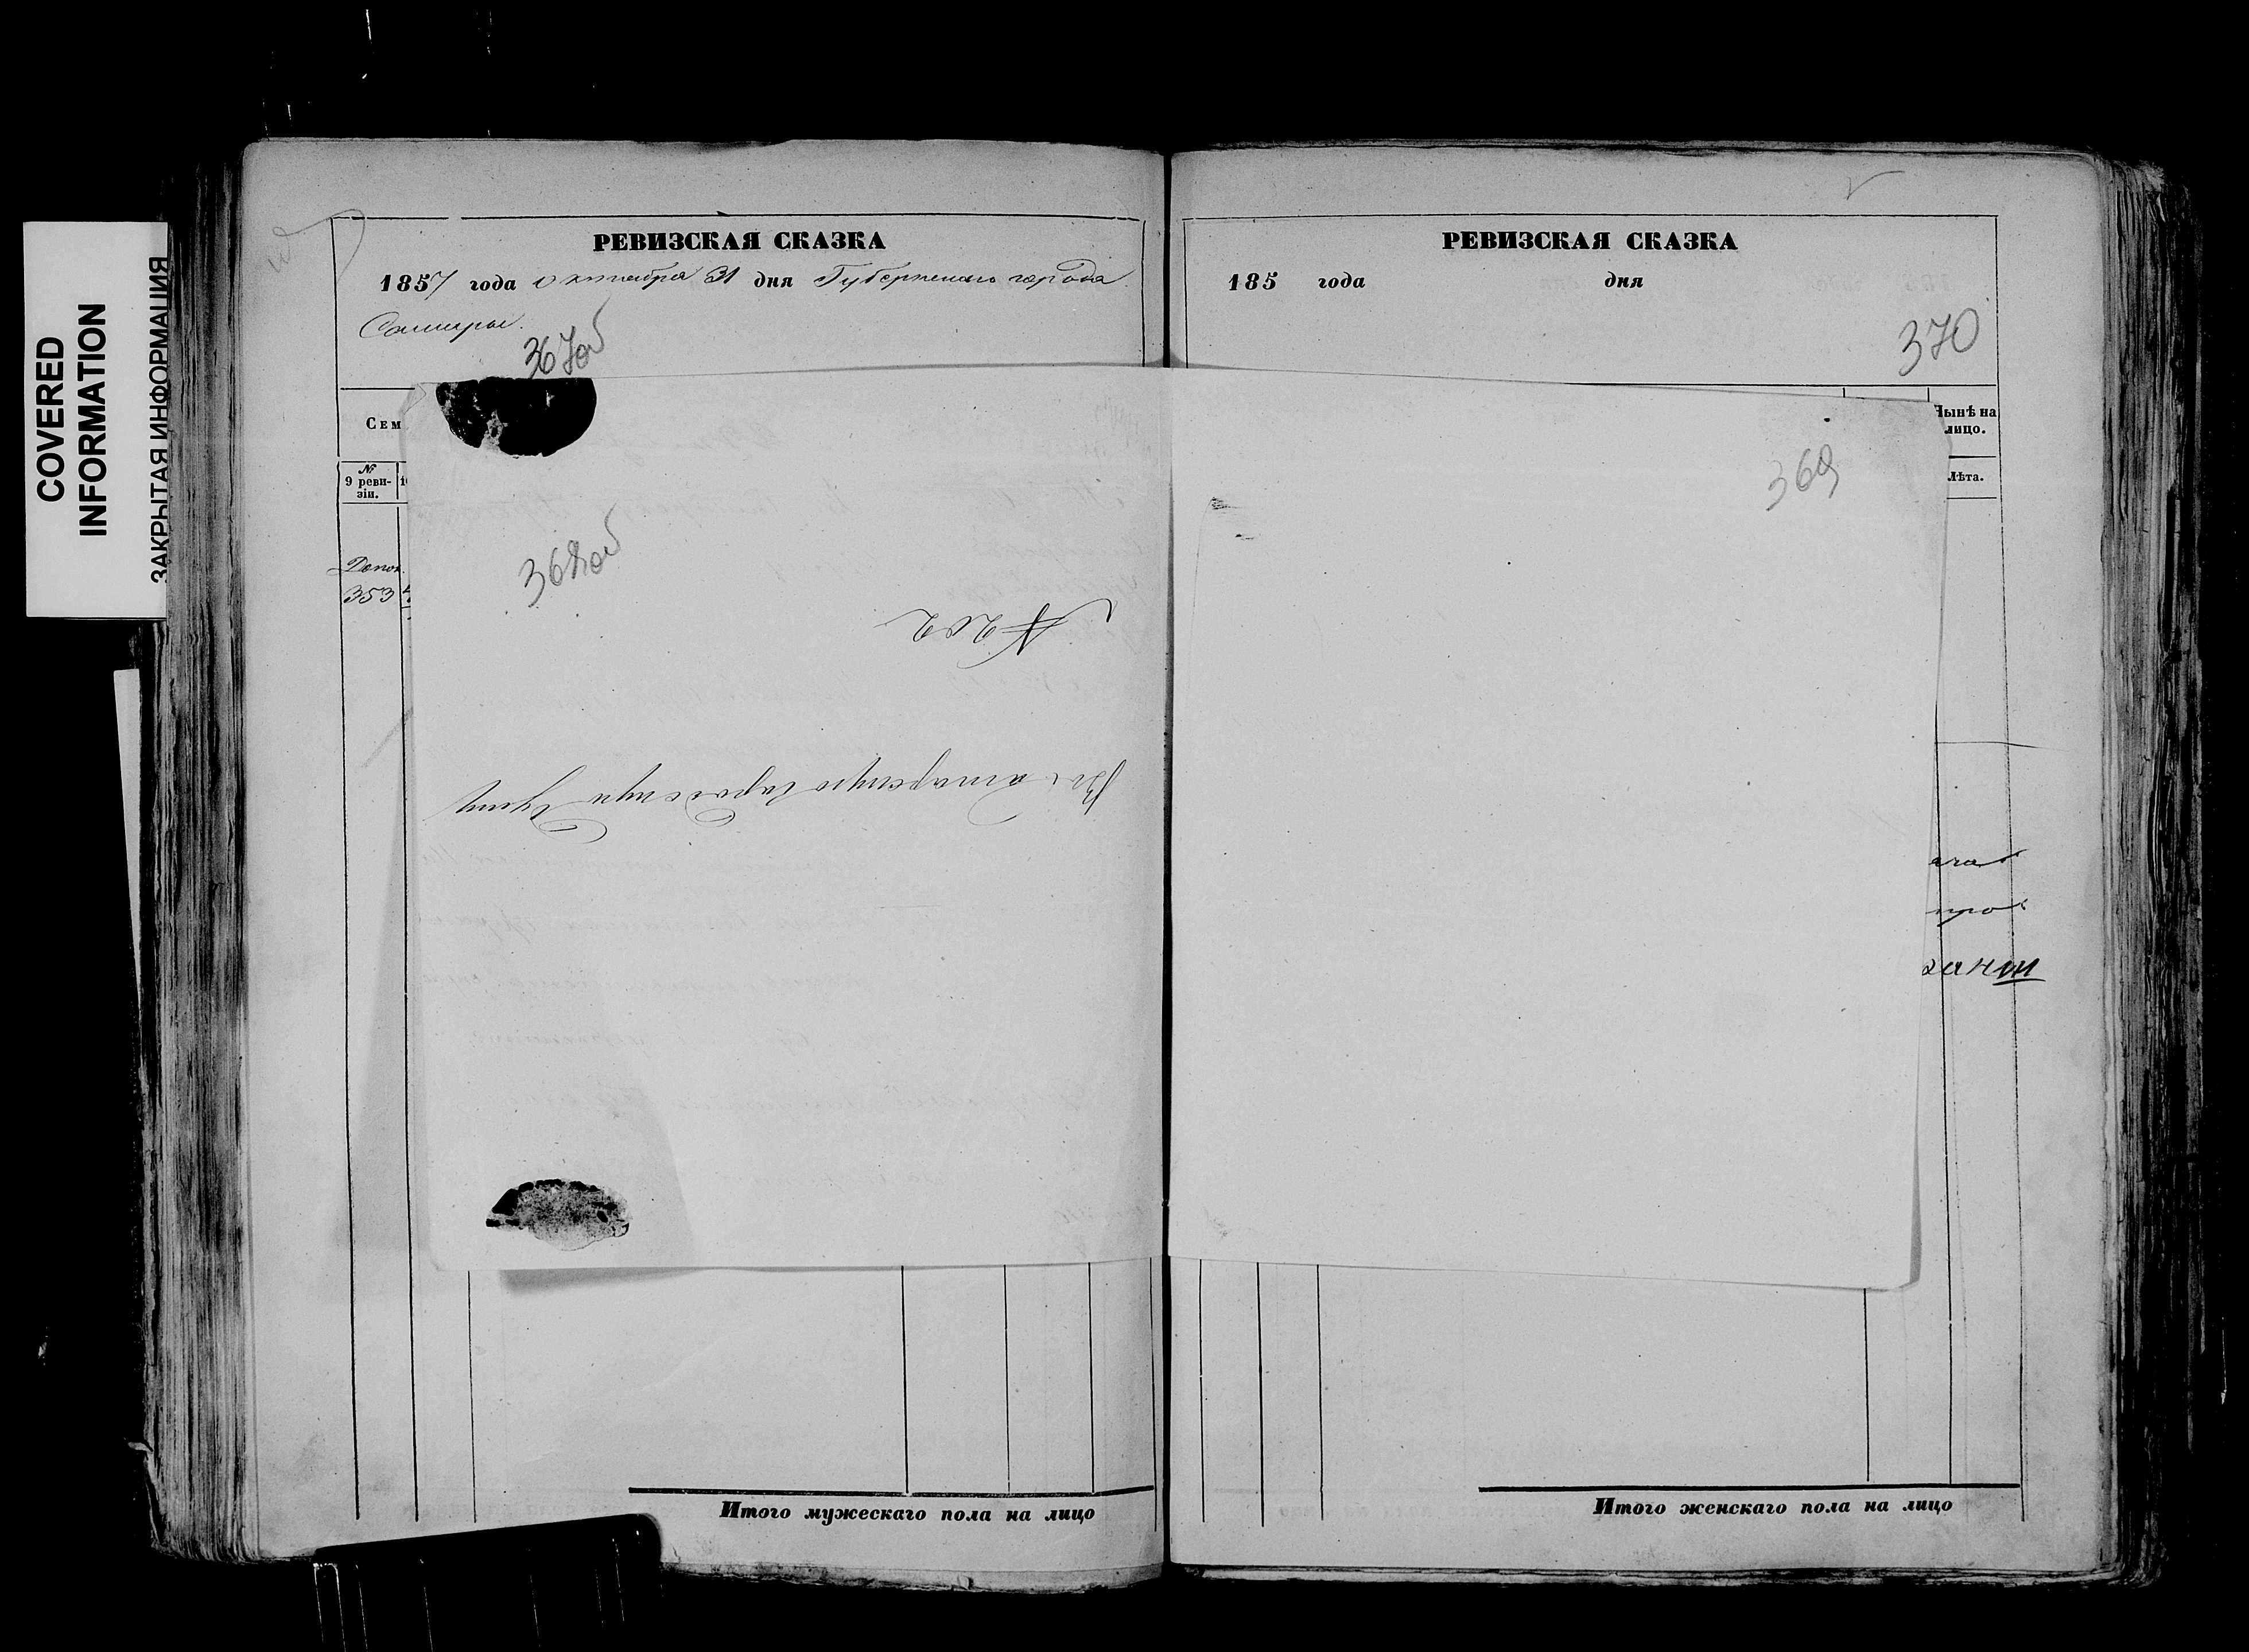 COVERED
INFORMATION
ЗАКРЫТАЯ ИНФОРМАЦИЯ
РЕВИЗСКАЯ СКАЗКА
1857 года октября 31 дня Губернскаго города
Самары.
367об
Сем
№
9 реви-
зіи.
Допол.
353
368об
№ 202
Въ Самарскую Городскую Думу
Итого мужескаго пола на лицо
РЕВИЗСКАЯ СКАЗКА
185 года дня
370
Нынѣ на
лицо.
Лѣта.
369
Итого женскаго пола на лицо